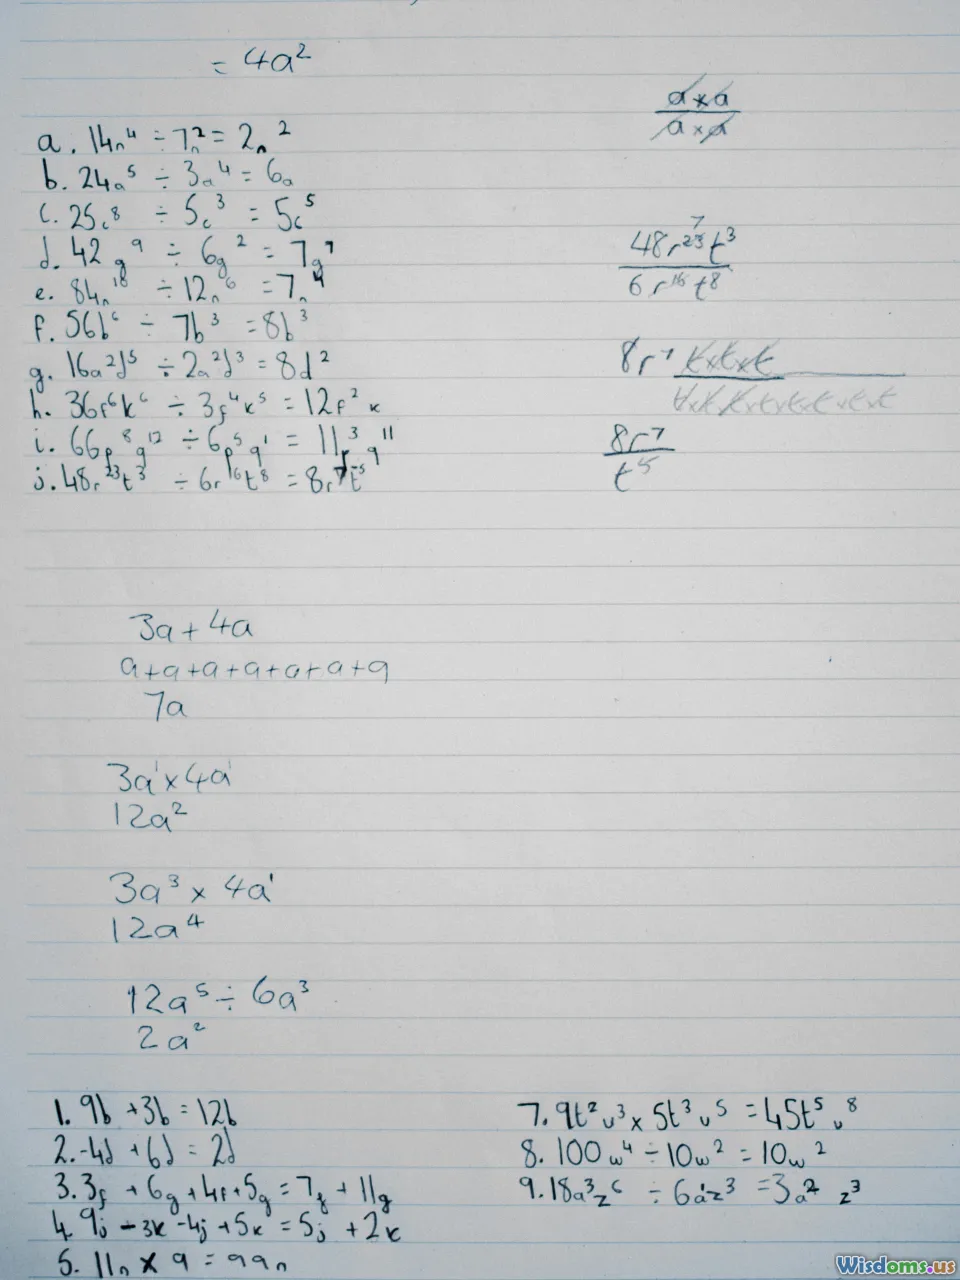 = 4a²
a × a
a × a
a. 14n⁴ ÷ 7n² = 2n²
b. 24a⁵ ÷ 3a⁴ = 6a
c. 25c⁸ ÷ 5c³ = 5c⁵
d. 42g⁹ ÷ 6g² = 7g⁷
e. 84n¹⁰ ÷ 12n⁶ = 7n⁴
f. 56b⁶ ÷ 7b³ = 8b³
g. 16a²d⁵ ÷ 2a²d³ = 8d²
h. 36f⁶k⁶ ÷ 3f⁴k⁵ = 12f²k
i. 66p⁸q¹² ÷ 6p⁵q¹ = 11p³q¹¹
j. 48r²³t³ ÷ 6r¹⁶t⁸ = 8r⁷t⁻⁵
7
48r²³t³
6r¹⁶t⁸
8r⁷ t×t×t
t×t×t×t×t×t×t×t
8r⁷
t⁵
3a + 4a
a+a+a+a+a+a+a
7a
3a¹ × 4a¹
12a²
3a³ × 4a¹
12a⁴
12a⁵ ÷ 6a³
2a²
1. 9b + 3b = 12b
2. -4d + 6d = 2d
3. 3f + 6g + 4f + 5g = 7f + 11g
4. 9j - 3k - 4j + 5k = 5j + 2k
5. 11n × 9 = 99n
7. 9t²v³ × 5t³v⁵ = 45t⁵v⁸
8. 100w⁴ ÷ 10w² = 10w²
9. 18a³z⁶ ÷ 6a¹z³ = 3a²z³
Wisdoms.us